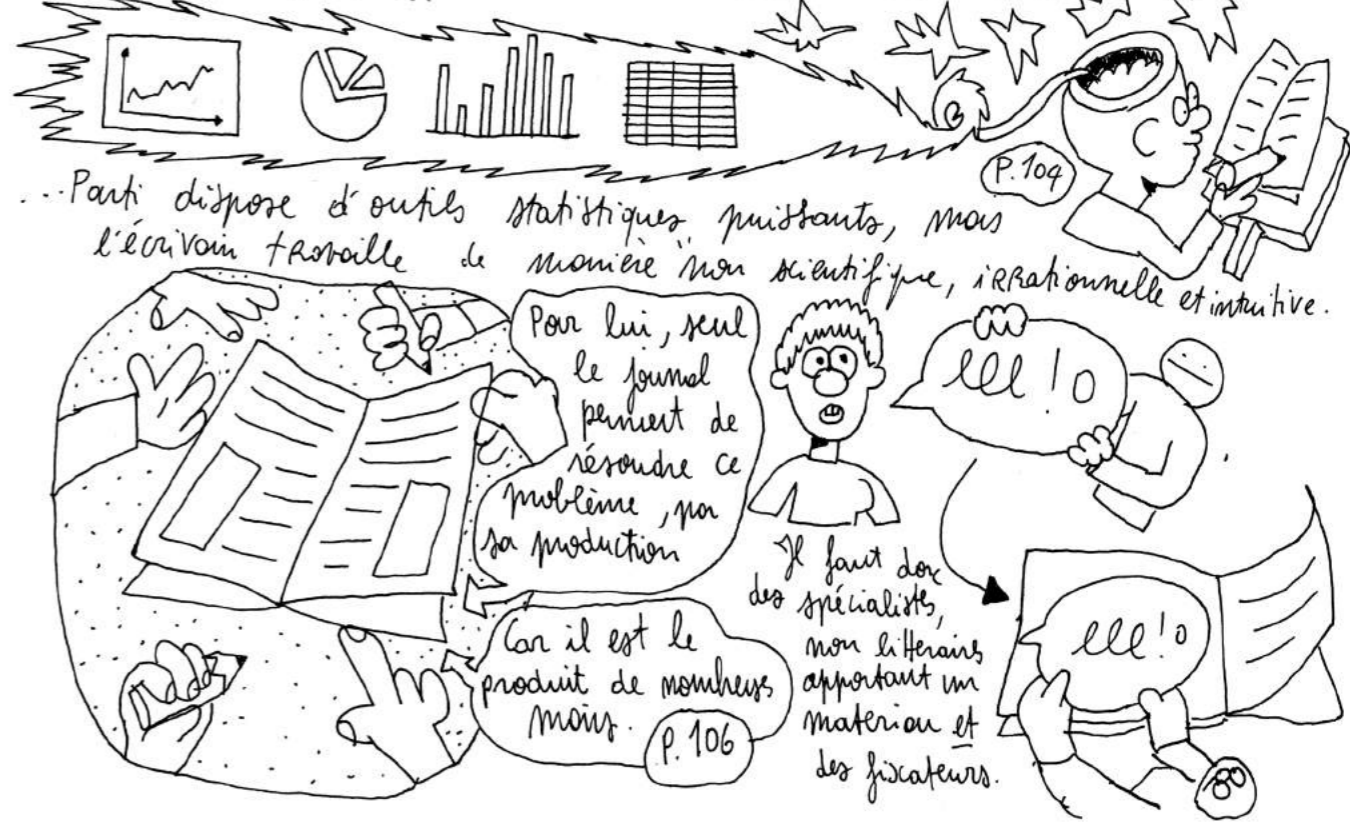 P. 104
...Parti dispose d'outils statistiques puissants, mais
l'écrivain travaille de manière non scientifique, irrationnelle et intuitive.
Pour lui, seul
le journal
permet de
résoudre ce
problème, par
sa production
Car il est le
produit de nombreuses
mains.
P. 106
Il faut donc
des spécialistes,
non littéraires
apportant un
matériau et
des fixateurs.
lll ! o
lll ! o